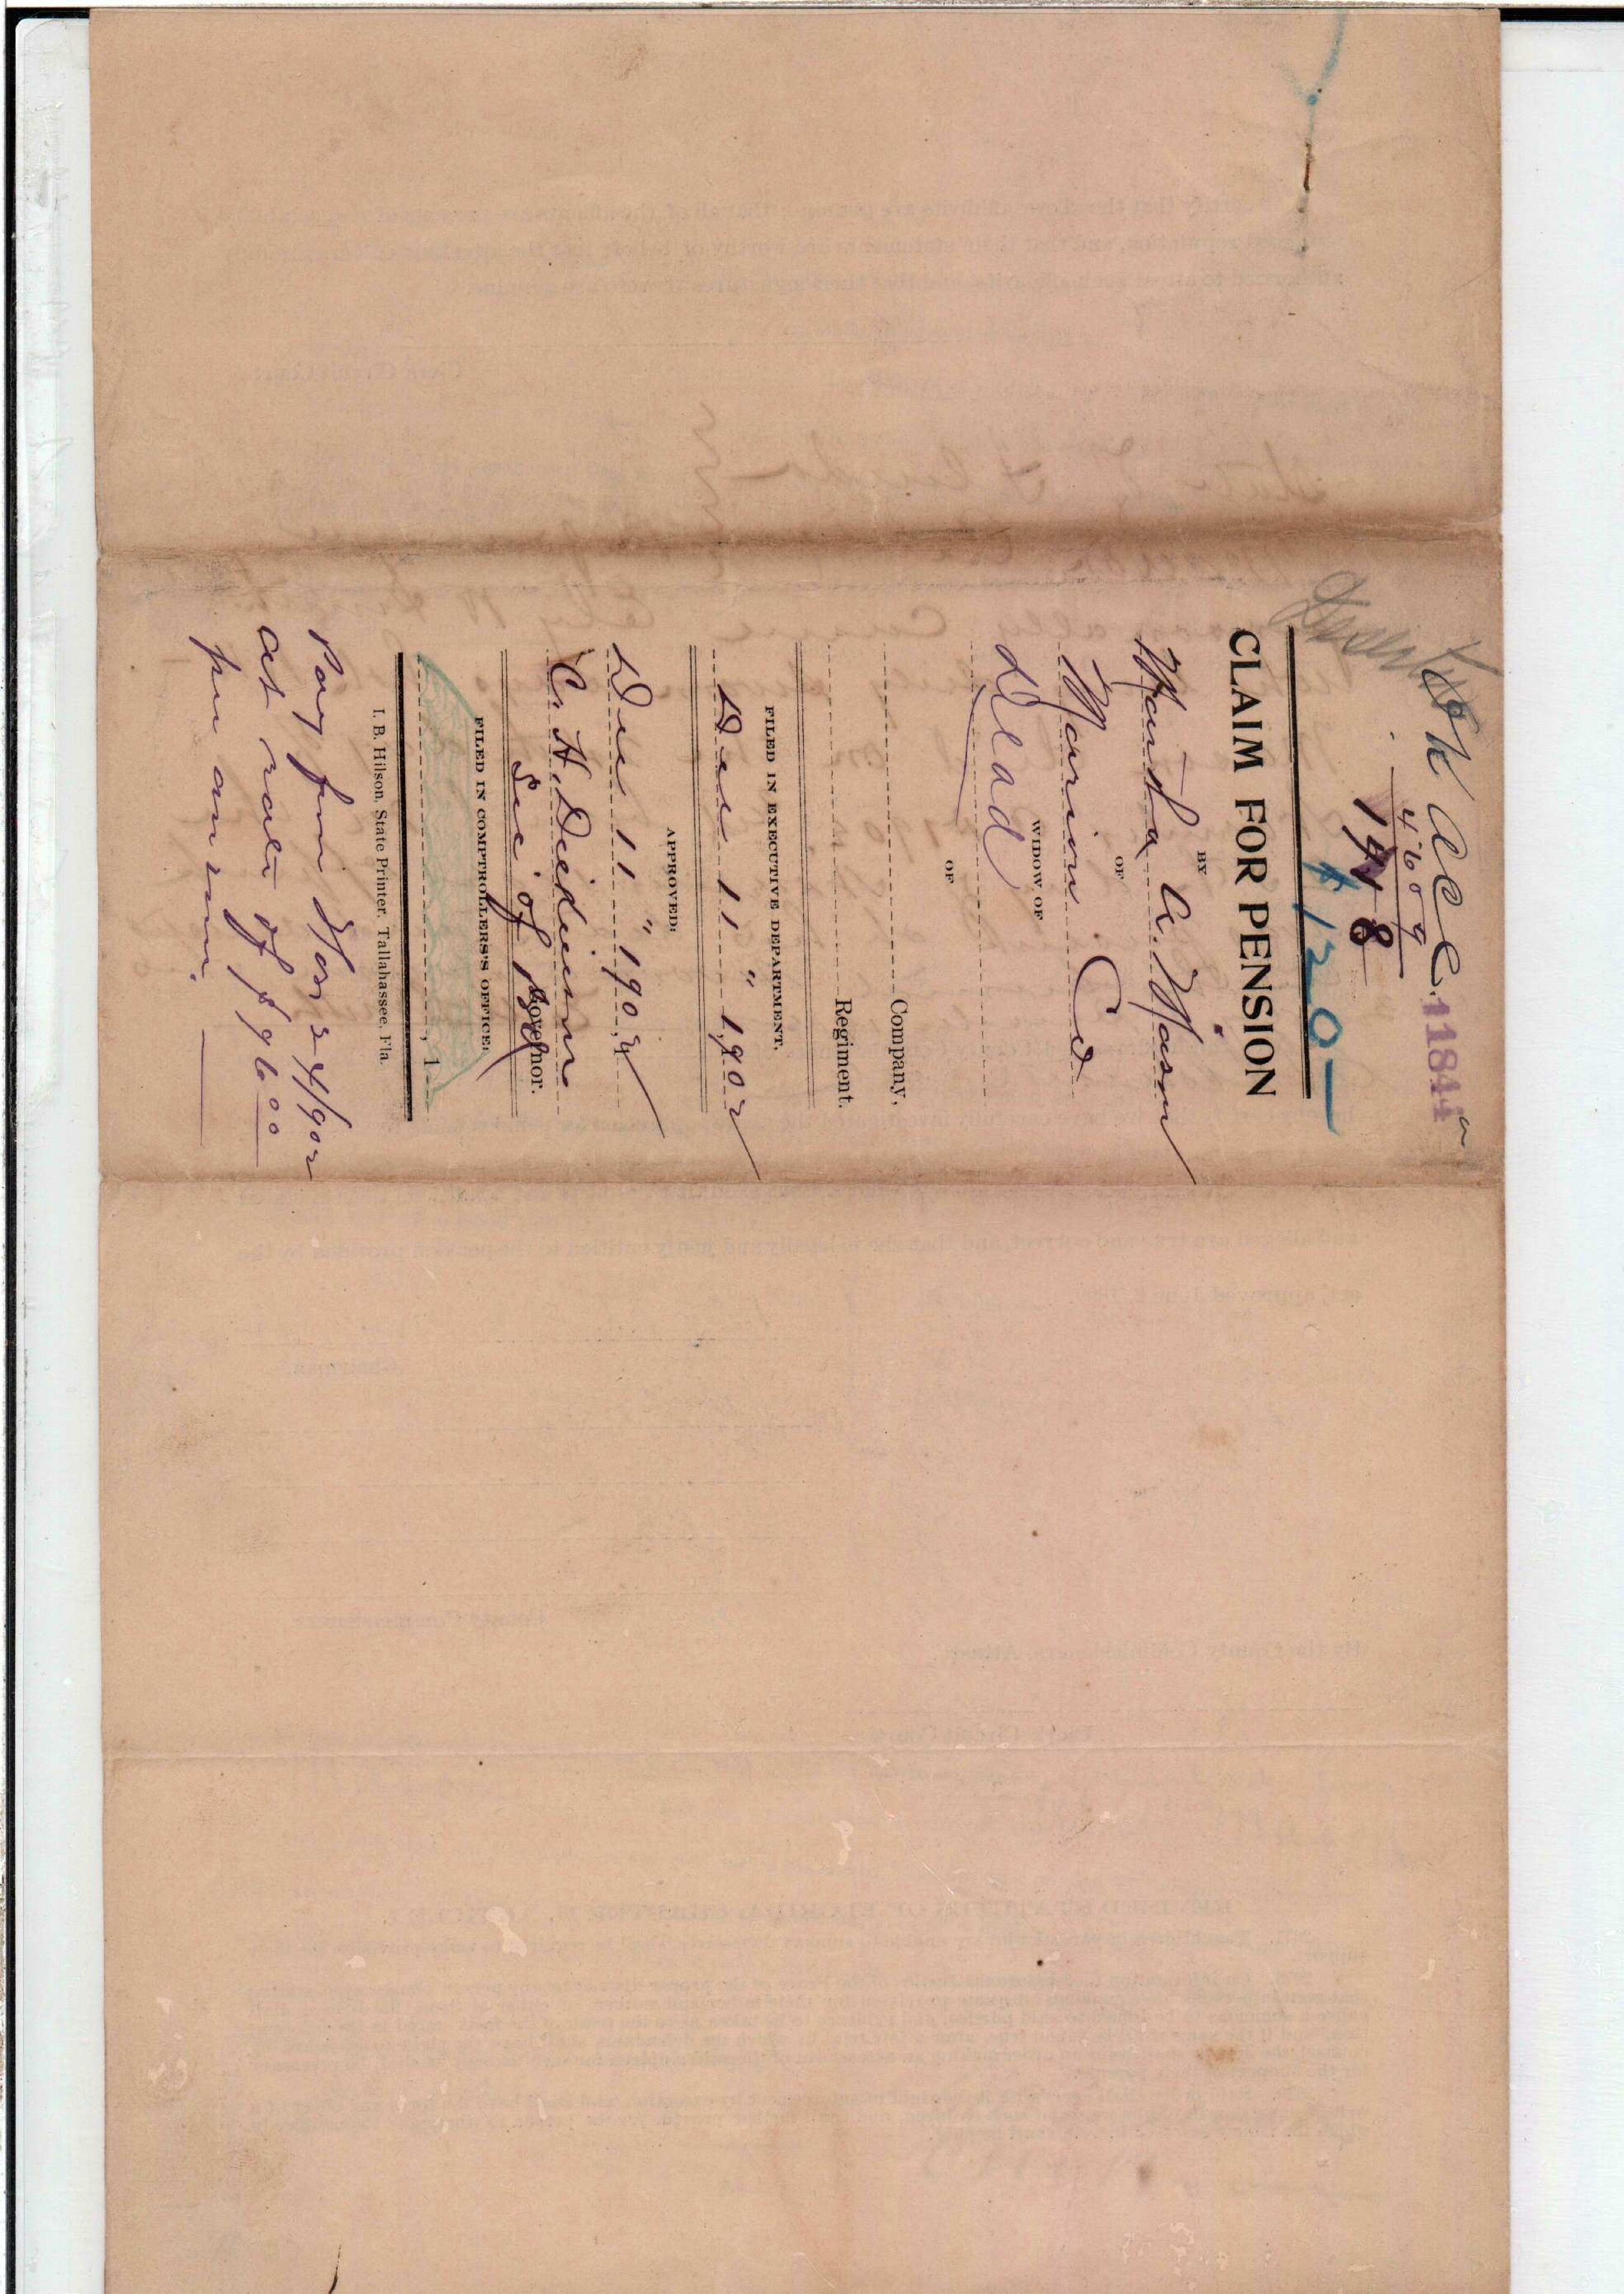 OK ACL. 11844
4609
1448
$120—
CLAIM FOR PENSION
BY
Martha A. Mason
OF
Marion Co
WIDOW OF
Dead
OF
Company,
Regiment.
FILED IN EXECUTIVE DEPARTMENT.
Dec 11" 1902
APPROVED:
Dec 11" 1902
C. H. Dickinson
Governor.
Sec of
FILED IN COMPTROLLERS'S OFFICE:
, 1
I. B. Hilson, State Printer, Tallahassee, Fla.
Pay from Nov 24/902
at rate of $96.00
per annum.